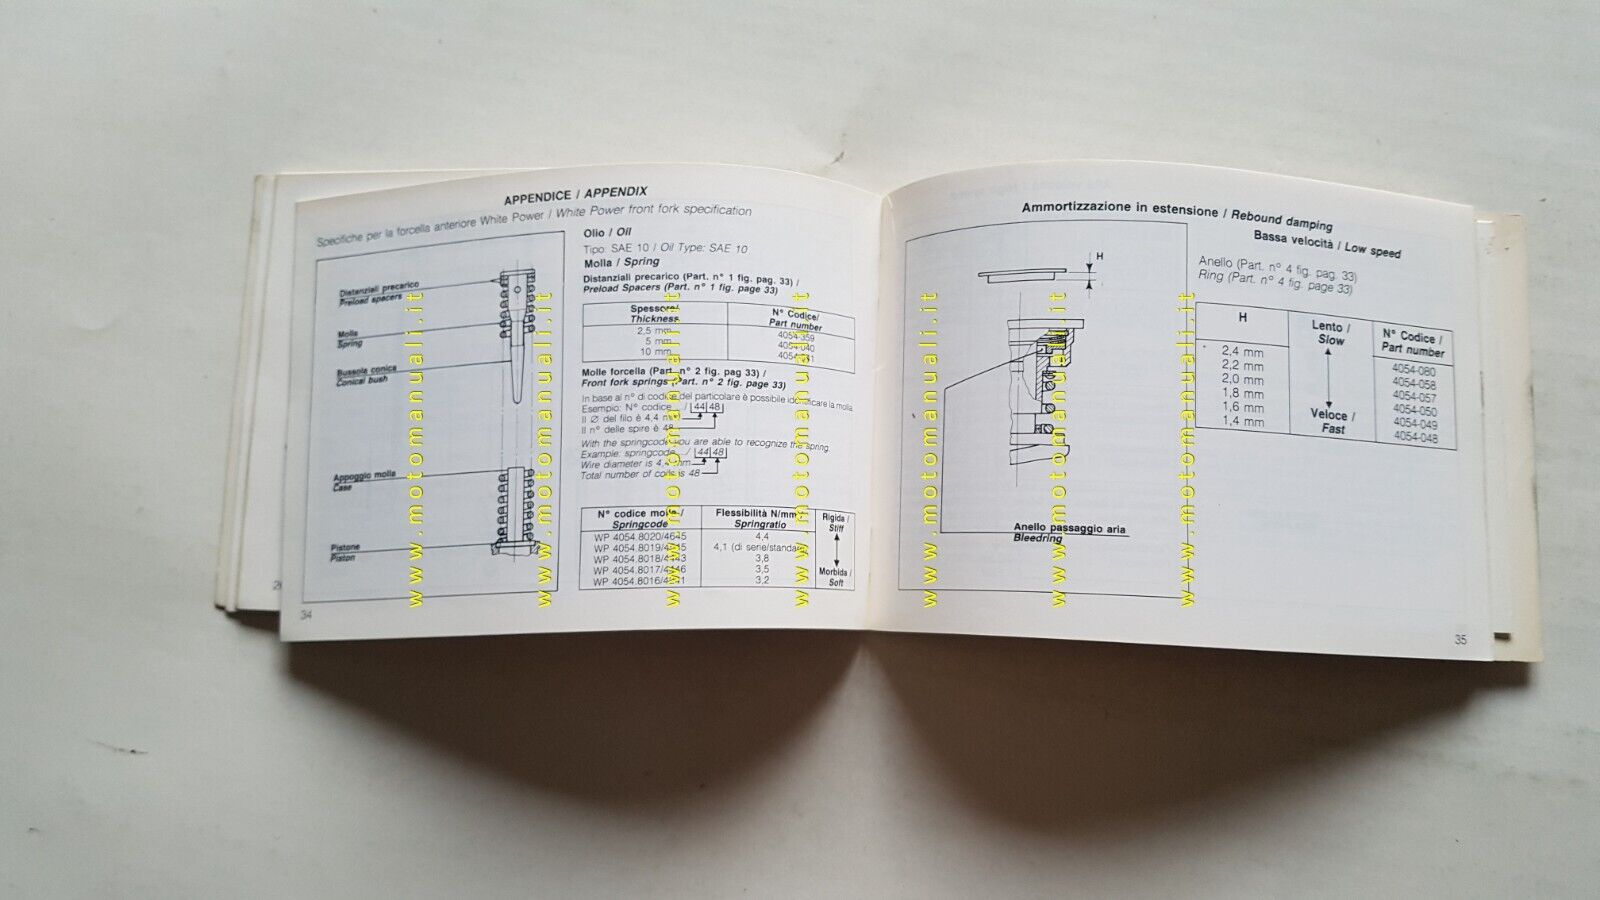 APPENDICE / APPENDIX
Specifiche per la forcella anteriore White Power / White Power front fork specification
Distanziali precarico
Preload spacers
Molla
Spring
Bussola conica
Conical bush
Appoggio molla
Case
Pistone
Piston
Olio / Oil
Tipo: SAE 10 / Oil Type: SAE 10
Molla / Spring
Distanziali precarico (Part. n° 1 fig. pag. 33) /
Preload Spacers (Part. n° 1 fig. page 33)
Spessore/ N° Codice/
Thickness Part number
2,5 mm 4054-359
5 mm
10 mm
Molle forcella (Part. n° 2 fig. pag 33) /
Front fork springs (Part. n° 2 fig. page 33)
In base al n° di codice del particolare è possibile identificare la molla.
Esempio: N° codice .../ 44 48
Il Ø del filo è 4,4 mm
Il n° delle spire è 48
With the springcode you are able to recognize the spring.
Example: springcode .../ 44 48
Wire diameter is 4,4 mm
Total number of coils is 48
N° codice molle / Flessibilità N/mm Rigida /
Springcode Springratio Stiff
WP 4054.8020/4645 4,4
WP 4054.8019/ 4,1 (di serie/standard)
WP 4054.8018/ 3,8
WP 4054.8017/ 3,5 Morbida /
WP 4054.8016/ 3,2 Soft
34
Ammortizzazione in estensione / Rebound damping
Bassa velocità / Low speed
H
Anello passaggio aria
Bleedring
Anello (Part. n° 4 fig. pag. 33)
Ring (Part. n° 4 fig. page 33)
H Lento / N° Codice /
Slow Part number
2,4 mm 4054-080
2,2 mm 4054-058
2,0 mm 4054-057
1,8 mm 4054-050
1,6 mm Veloce / 4054-049
1,4 mm Fast 4054-048
35
www.motomanuali.it
www.motomanuali.it
www.motomanuali.it
www.motomanuali.it
www.motomanuali.it
www.motomanuali.it
www.motomanuali.it